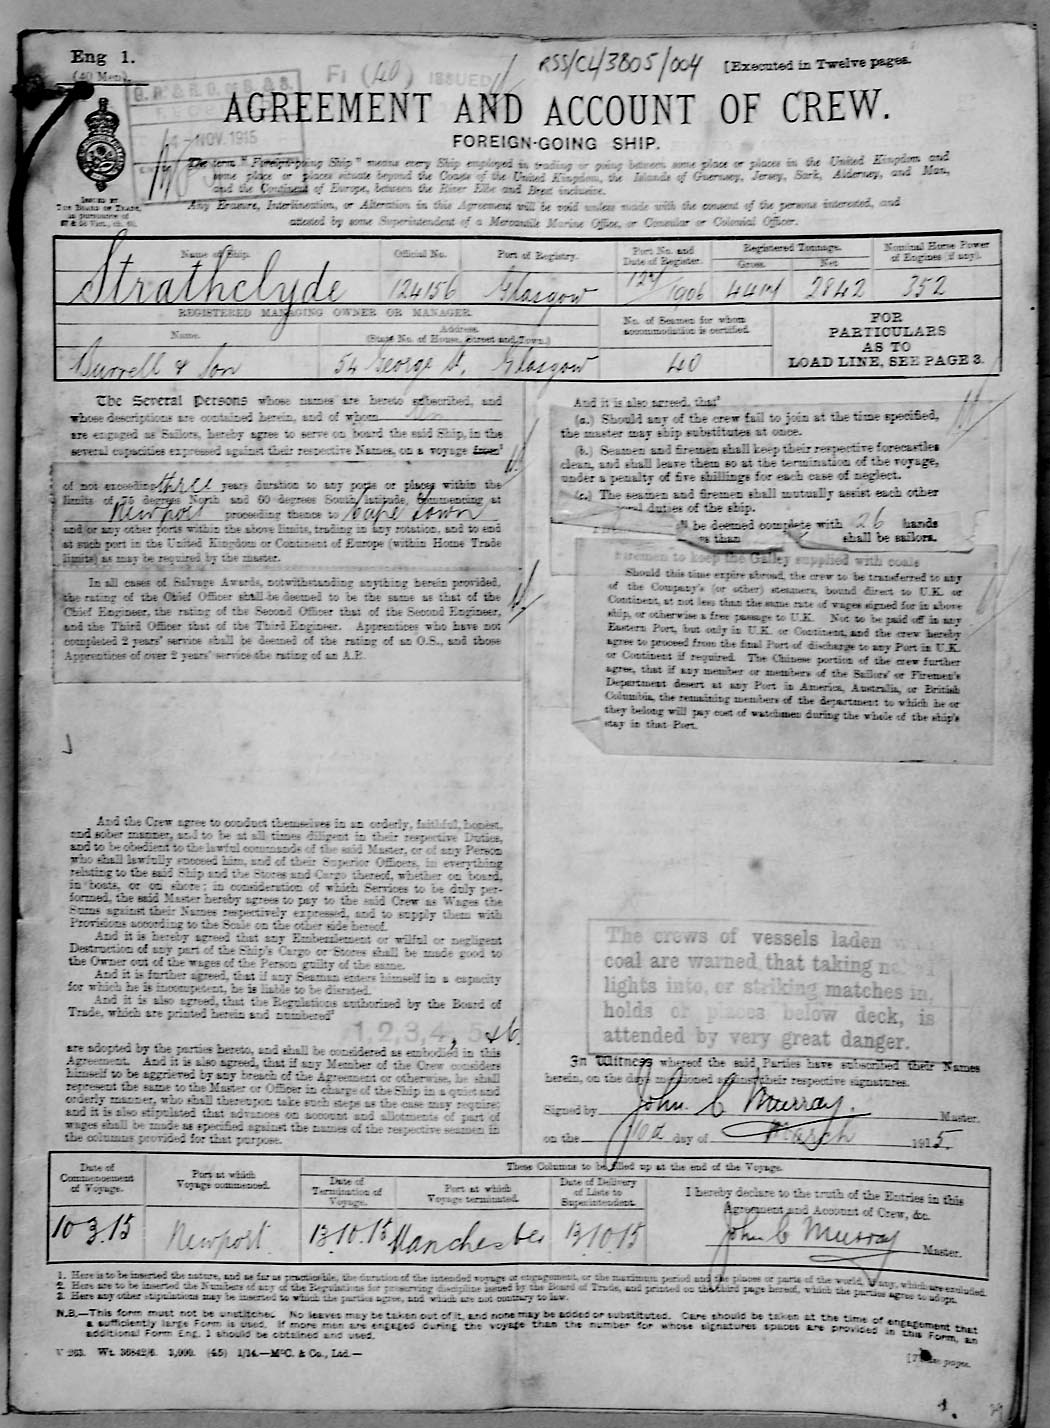 Eng 1.
(40 Men).
RSS/CL/3805/004
[Executed in Twelve pages.
Fi (40) ISSUED
NOV. 1915
AGREEMENT AND ACCOUNT OF CREW.
FOREIGN-GOING SHIP.
The term "Foreign-going Ship" means every Ship employed in trading or going between some place or places in the United Kingdom and
some place or places situate beyond the Coasts of the United Kingdom, the Islands of Guernsey, Jersey, Sark, Alderney, and Man,
and the Continent of Europe, between the River Elbe and Brest inclusive.
Any Erasure, Interlineation, or Alteration in this Agreement will be void unless made with the consent of the persons interested, and
attested by some Superintendent of a Mercantile Marine Office, or Consular or Colonial Officer.
ISSUED BY
THE BOARD OF TRADE,
in pursuance of
Name of Ship. Official No. Port of Registry. Port No. and Date of Register. Registered Tonnage. Gross. Net. Nominal Horse Power of Engines (if any).
Strathclyde 124156 Glasgow 1906 2842 352
REGISTERED MANAGING OWNER OR MANAGER.
Name. Address. (State No. of House, Street and Town.) No. of Seamen for whom accommodation is certified.
Burrell & Son 54 George St, Glasgow 40
FOR
PARTICULARS
AS TO
LOAD LINE, SEE PAGE 3.
The Several Persons whose names are hereto subscribed, and
whose descriptions are contained herein, and of whom
are engaged as Sailors, hereby agree to serve on board the said Ship, in the
several capacities expressed against their respective Names, on a voyage from
of not exceeding three years duration to any ports or places within the
limits of 75 degrees North and 60 degrees South latitude, commencing at
Newport proceeding thence to Cape Town
and/or any other ports within the above limits, trading in any rotation, and to end
at such port in the United Kingdom or Continent of Europe (within Home Trade
limits) as may be required by the master.
In all cases of Salvage Awards, notwithstanding anything herein provided,
the rating of the Chief Officer shall be deemed to be the same as that of the
Chief Engineer, the rating of the Second Officer that of the Second Engineer,
and the Third Officer that of the Third Engineer. Apprentices who have not
completed 2 years' service shall be deemed of the rating of an O.S., and those
Apprentices of over 2 years' service the rating of an A.B.
And the Crew agree to conduct themselves in an orderly, faithful, honest,
and sober manner, and to be at all times diligent in their respective Duties,
and to be obedient to the lawful commands of the said Master, or of any Person
who shall lawfully succeed him, and of their Superior Officers, in everything
relating to the said Ship and the Stores and Cargo thereof, whether on board,
in boats, or on shore; in consideration of which Services to be duly per-
formed, the said Master hereby agrees to pay to the said Crew as Wages the
Sums against their Names respectively expressed, and to supply them with
Provisions according to the Scale on the other side hereof.
And it is hereby agreed that any Embezzlement or wilful or negligent
Destruction of any part of the Ship's Cargo or Stores shall be made good to
the Owner out of the wages of the Person guilty of the same.
And it is further agreed, that if any Seaman enters himself in a capacity
for which he is incompetent, he is liable to be disrated.
And it is also agreed, that the Regulations authorized by the Board of
Trade, which are printed herein and numbered²
1, 2, 3, 4, 5 & 6.
are adopted by the parties hereto, and shall be considered as embodied in this
Agreement. And it is also agreed, that if any Member of the Crew considers
himself to be aggrieved by any breach of the Agreement or otherwise, he shall
represent the same to the Master or Officer in charge of the Ship in a quiet and
orderly manner, who shall thereupon take such steps as the case may require;
and it is also stipulated that advances on account and allotments of part of
wages shall be made as specified against the names of the respective seamen in
the columns provided for that purpose.
And it is also agreed, that³
(a.) Should any of the crew fail to join at the time specified,
the master may ship substitutes at once.
(b.) Seamen and firemen shall keep their respective forecastles
clean, and shall leave them so at the termination of the voyage,
under a penalty of five shillings for each case of neglect.
(c.) The seamen and firemen shall mutually assist each other
duties of the ship.
be deemed complete with 26 hands
than shall be sailors.
Firemen to keep the Galley supplied with coals
Should this time expire abroad, the crew to be transferred to any
of the Company's (or other) steamers, bound direct to U.K. or
Continent, at not less than the same rate of wages signed for in above
ship, or otherwise a free passage to U.K. Not to be paid off in any
Eastern Port, but only in U.K. or Continent, and the crew hereby
agree to proceed from the final Port of discharge to any Port in U.K.
or Continent if required. The Chinese portion of the crew further
agree, that if any member or members of the Sailors' or Firemen's
Department desert at any Port in America, Australia, or British
Columbia, the remaining members of the department to which he or
they belong will pay cost of watchmen during the whole of the ship's
stay in that Port.
The crews of vessels laden
coal are warned that taking
lights into, or striking matches in,
holds or places below deck, is
attended by very great danger.
In Witness whereof the said Parties have subscribed their Names
herein, on the days mentioned against their respective signatures.
Signed by John C Murray. Master.
on the 10th day of March 1915.
These Columns to be filled up at the end of the Voyage.
Date of Commencement of Voyage. Port at which Voyage commenced. Date of Termination of Voyage. Port at which Voyage terminated. Date of Delivery of Lists to Superintendent.
10 3.15 Newport. 13.10.15 Manchester 13.10.15
I hereby declare to the truth of the Entries in this
Agreement and Account of Crew, &c.
John C Murray Master.
1. Here is to be inserted the nature, and as far as practicable, the duration of the intended voyage or engagement, or the maximum period and the places or parts of the world, if any, which are excluded.
2. Here are to be inserted the Numbers of any of the Regulations for preserving discipline issued by the Board of Trade, and printed on the third page hereof, which the parties agree to adopt.
3. Here any other stipulations may be inserted to which the parties agree, and which are not contrary to law.
N.B.—This form must not be unstitched. No leaves may be taken out of it, and none may be added or substituted. Care should be taken at the time of engagement that
a sufficiently large Form is used. If more men are engaged during the voyage than the number for whose signatures spaces are provided in this Form, an
additional Form Eng. 1 should be obtained and used.
V 263. Wt. 36842/6. 3,000. (45) 1/14.—McC. & Co., Ltd.—